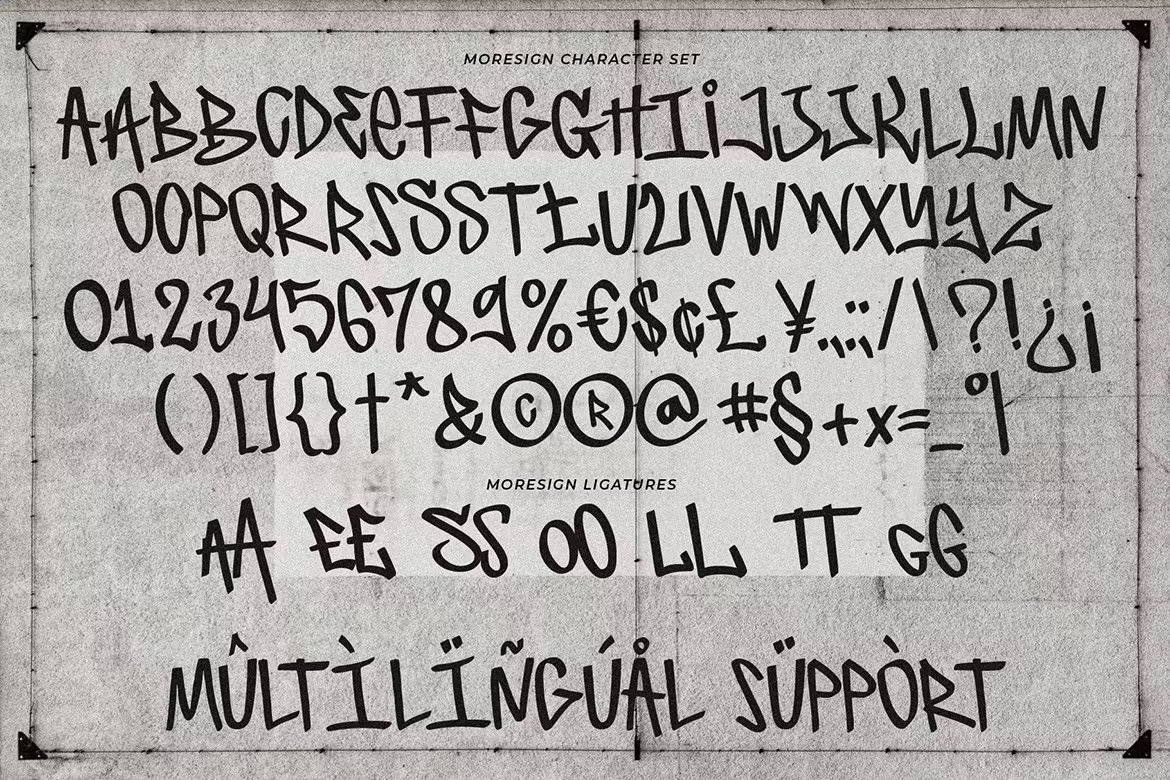 MORESIGN CHARACTER SET
AABBCDEeFFGGHIiJJJKLLMN
OOPQRRSSSTŁU2VWWXYYZ
0123456789%€$¢£ ¥.,:;/\?!¿¡
()[]{}†*&©®@#§+x=_°|
MORESIGN LIGATURES
AA EE SS OO LL TT GG
MÛLTÌLÏÑGÚÅL SÜPPÒRT